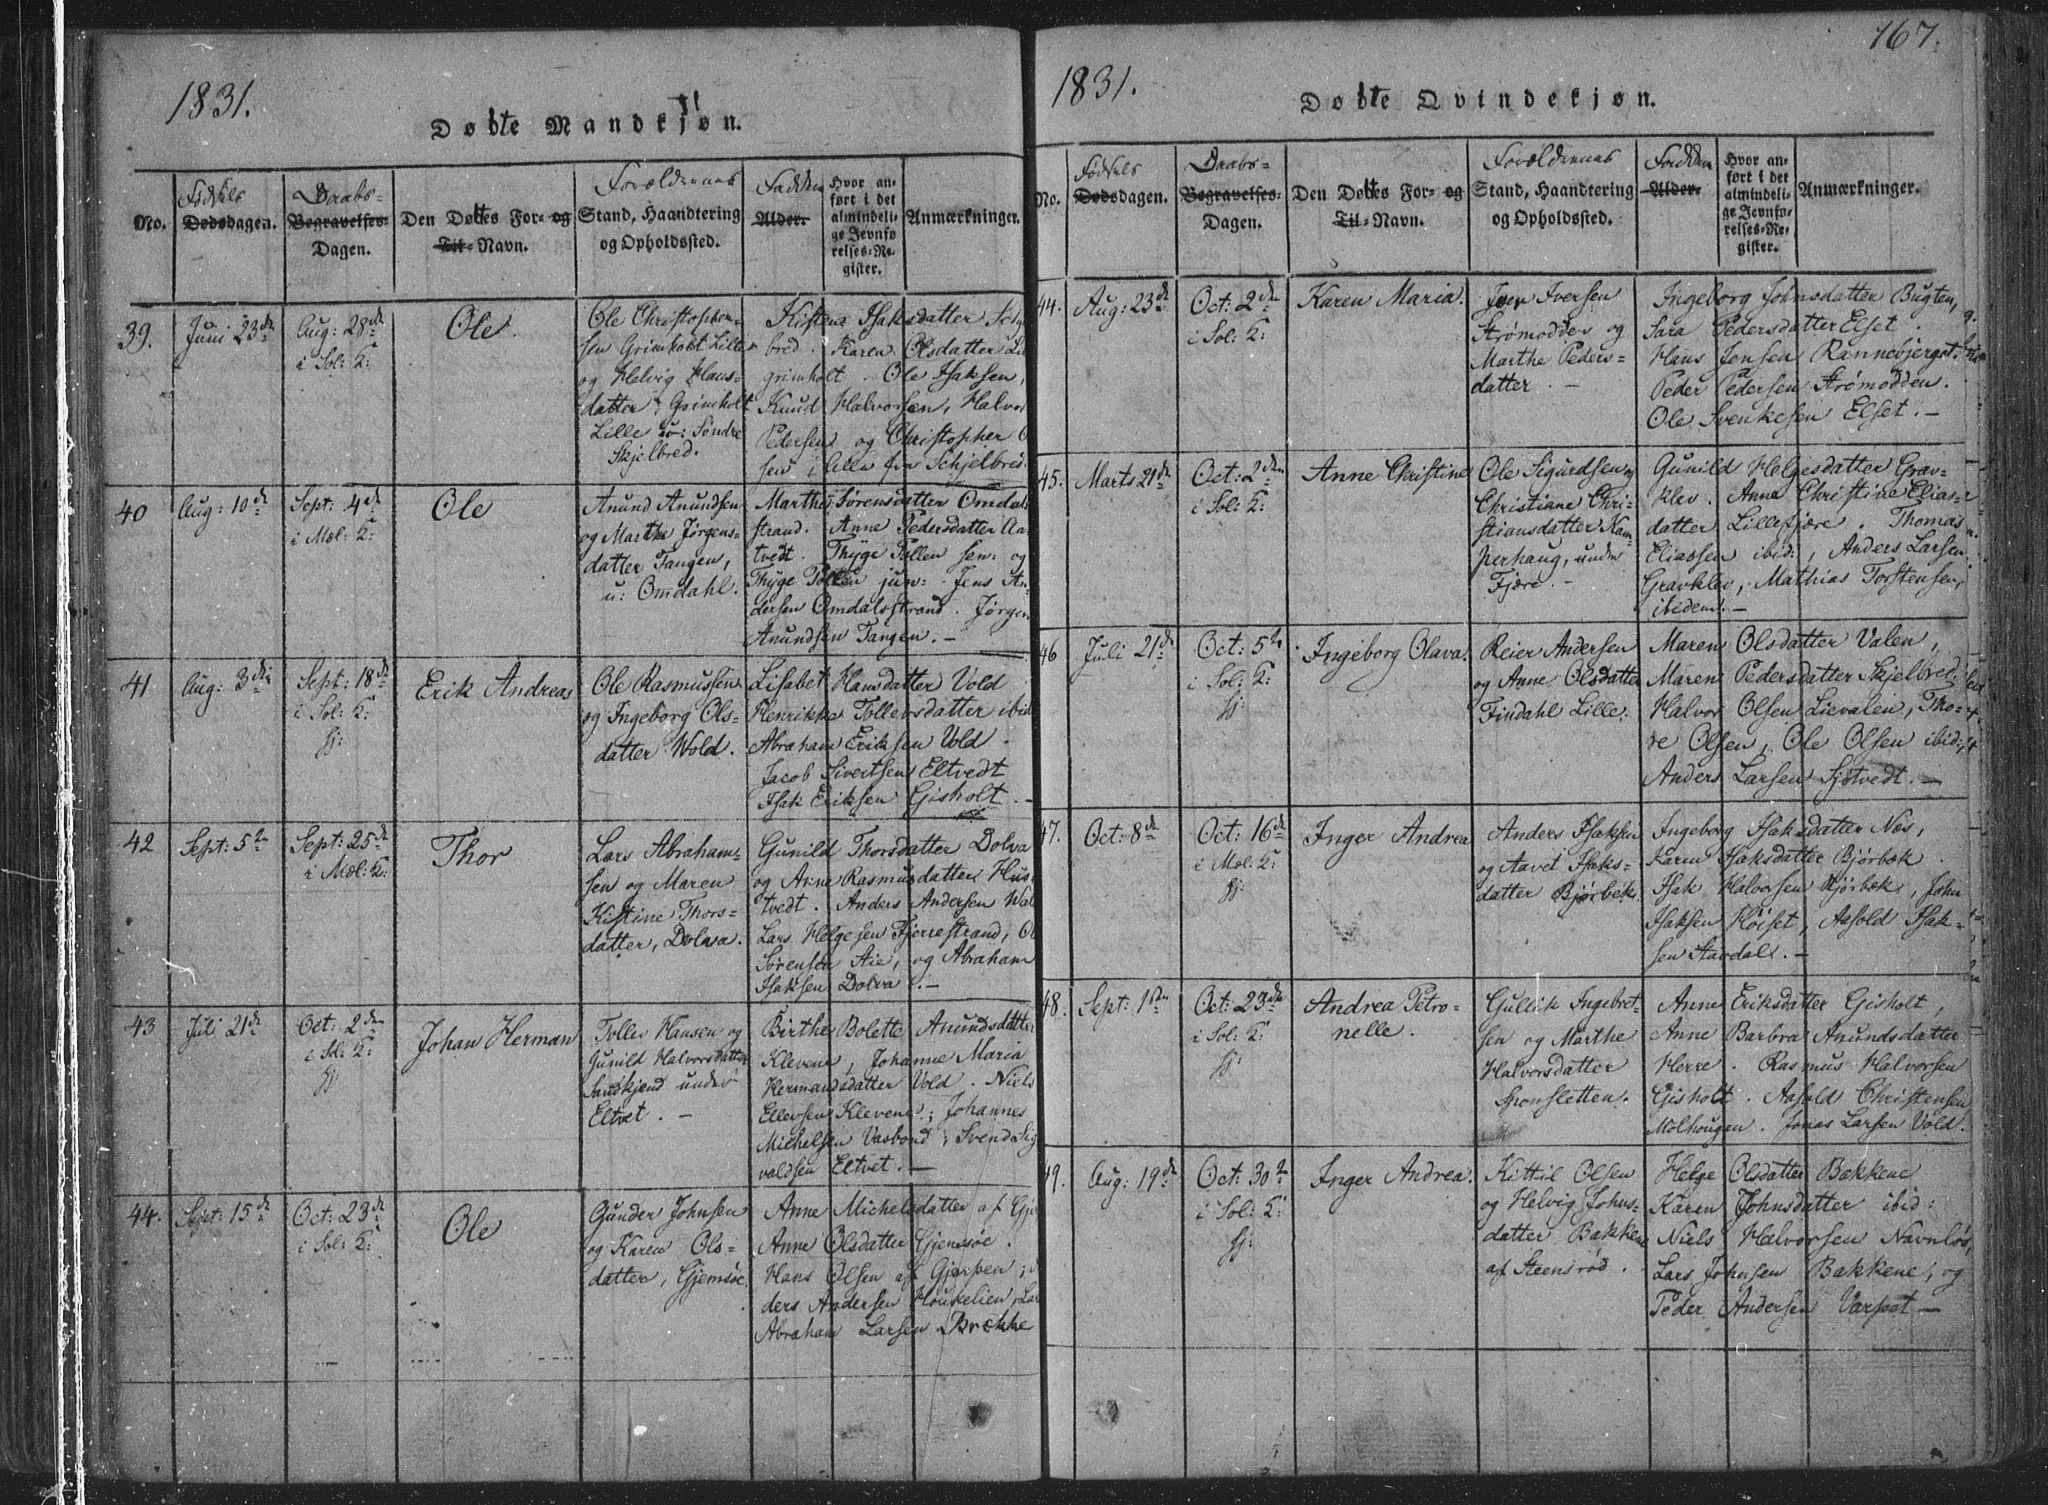 1831.
Døbte Mandkjøn.
No.
Fødsels
Dødsdagen.
Daabs-
Begravelses-
Dagen.
Den Døbtes For- og
Til-Navn.
Forældrenes
Stand, Haandtering
og Opholdssted.
Fadderne
Alder.
Hvor an-
ført i det
almindeli-
ge Jevnfø-
relses-Re-
gister.
Anmærkninger.
39.
Juni 23de
Aug: 28de
i Sol: K:
Ole.
Ole Christopher-
sen Grimholt Lille
og Helvig Hans-
datter, Grimholt
Lille u: Søndre
Skjelbred.
Kistene Isaksdatter
bred. Karen Olsdatter
grimholt. Ole Isaksen,
Knud Halvorsen, Halvor
Pedersen og Christopher
sen i lille fra Schjelbred
40
Aug: 10de
Sept: 4de
i Mæl: K:
Ole
Anund Anundsen
og Marthe Jørgens-
datter Tangen,
u: Omdahl.
Marthe Sørensdatter Omdal-
strand. Anne Pedersdatter Aa-
tvedt. Thyge Tollen sen: og
Thyge Tollen jun: Jens An-
dersen Omdalsstrand. Jørgen
Anundsen Tangen. -
41
Aug: 3die
Sept: 18de
i Sol: K:
hj:
Erik Andreas
Ole Rasmussen
og Ingeborg Ols-
datter Wold.
Lisabet Hansdatter Vold
Henrikke Tollevsdatter ibid
Abraham Eriksen Vold.
Jacob Sivertsen Eltvedt
Isak Eriksen Gisholt. -
42
Sept: 5te
Sept: 25de
i Mæl: K:
Thor
Lars Abraham-
sen og Maren
Kistine Thors-
datter, Dolva.
Gunild Thorsdatter Dolva
og Anne Rasmusdatter Hus-
tvedt. Anders Andersen
Lars Helgesen Fjerrestrand,
Sørensen Aie, og Abraham
Isaksen Dolva. -
43
Juli 21de
Oct: 2den
i Sol: K:
hj:
Johan Herman
Tolles Hansen og
Gunild Halvorsdatter
Sandkjend under
Eltvet. -
Birthe Bolette Anundsdatter
Klevene, Johanne Maria
Hermandsdatter Vold. Niels
Ellevsen Klevene; Johannes
Michelsen Vasbond; Svend Sig-
valdsen Eltvet. -
44.
Sept: 15de
Oct: 23de
i Sol: K:
Ole
Gunder Johnsen
og Karen Ols-
datter, Gjemsøe.
Anne Michelsdatter af
Anne Olsdatter Gjemsøe.
Hans Olsen af Gjerpen;
ders Andersen Houkelien, Lar
Abraham Larsen Brække
167.
1831.
Døbte Qvindekjøn.
No.
Fødsels
Dødsdagen.
Daabs-
Begravelses-
Dagen.
Den Døbtes For- og
Til-Navn.
Forældrenes
Stand, Haandtering
og Opholdssted.
Fadderne
Alder.
Hvor an-
ført i det
almindeli-
ge Jevnfø-
relses-Re-
gister.
Anmærkninger.
44.
Aug: 23de
Oct: 2den
i Sol: K:
Karen Maria.
Iver Iversen
Strømodden og
Marthe Peders-
datter. -
Ingeborg Johnsdatter Bugten,
Sara Pedersdatter Elset.
Hans Jensen Rønnebjerget.
Peder Pedersen Strømodden.
Ole Svenkesen Elset. -
45.
Marts 21de
Oct: 2den
i Sol: K:
Anne Christine
Ole Sigurdsen og
Christiane Chri-
stiansdatter Kam-
perhaug, under
Fjære. -
Gunild Helgesdatter Grav-
klev. Anne Christine Elias-
datter Lillefjære. Thomas
Eliassen ibid:, Anders Larsen
Gravklev, Mathias Torstensen,
ibidem. -
46
Juli 21de
Oct: 5te
i Sol: K:
hj:
Ingeborg Olava.
Reier Andersen
og Anne Olsdatter
Findahl Lille.
Maren Olsdatter Valen,
Maren Pedersdatter Skjelbred.
Halvor Olsen Lievalen, Tho-
re Olsen, Ole Olsen ibid:,
Anders Larsen Sjøtvedt. -
47.
Oct: 8de
Oct: 16de
i Mæl: K:
hj:
Inger Andrea
Anders Isaksen
og Aavet Isaks-
datter Bjørbek.
Ingeborg Isaksdatter Nøs,
Karen Isaksdatter Bjørbæk.
Isak Halvorsen Bjørbæk, John
Isaksen Høiset, Aasold Isak-
sen Aavdal. -
48.
Sept: 1ste
Oct: 23de
i Sol: K:
hj:
Andrea Petro-
nelle.
Gullik Ingebret-
sen og Marthe
Halvorsdatter
Sponsletten.
Anne Eriksdatter Gisholt,
Anne Barbra Anundsdatter
Herre. Rasmus Halvorsen
Gisholt. Aasold Christensen
Molhougen. Jonas Larsen Vold.
49.
Aug: 19de
Oct: 30te
i Sol: K:
hj:
Inger Andrea.
Kittil Olsen
og Helvig Johns-
datter Bakkene
af Steensrød.
Helge Olsdatter Bakkene
Karen Johnsdatter ibid:
Niels Halvorsen Navnløs,
Lars Johnsen Bakkene, og
Peder Andersen Varpet -